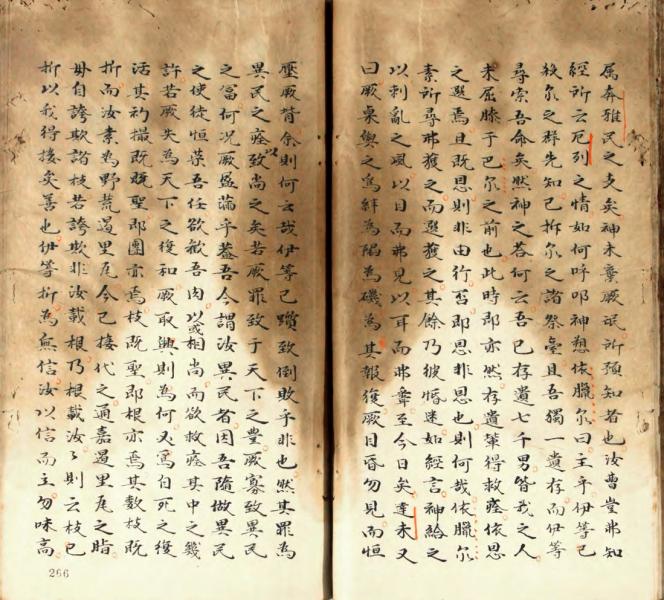 属奔雅民之支矣神未棄厥氓所預知者也汝曹豈弗知
經所云厄列之情如何呼叩神愬依臘尔曰主乎伊等已
殺尔之群先知已拆尔之諸祭臺且吾獨一遺存而伊等
尋索吾命矣然神之荅何云吾已存遺七千男皆我之人
未屈膝于巴尔之前也此時即亦然存遺輩得救痊依恩
之選焉且既恩則非由行否即恩非恩也則何哉依臘尔
素所尋弗獲之而選獲之其餘乃彼惛迷如經言神給之
以刺亂之風以目而弗見以耳而弗至今日矣達未又
曰厥桌與之為絆為陷為磯為其報復厥目昏勿見而恒
壓厥背余則何云哉伊等已躓致倒敗乎非也然其罪為
異民之痊以致尚之矣若厥罪致于天下之豊厥寡致異民
之富何况厥盈滿乎蓋吾今謂汝異民者因吾隨做異民
之使徒恒榮吾任欲歓吾肉以或相尚而欲救痊其中之幾
許若厥失為天下之復和厥取興則為何又寫自死之復
活其初撮既既聖即團亦焉枝既聖即根亦焉其數枝既
折而汝素為野荒遏里瓦今已接代之通嘉遏里瓦之脂
毋自誇欺諸枝若誇欺非汝載根乃根載汝〻則云枝已
折以我得接矣善也伊等折為無信汝以信而主勿味高
266